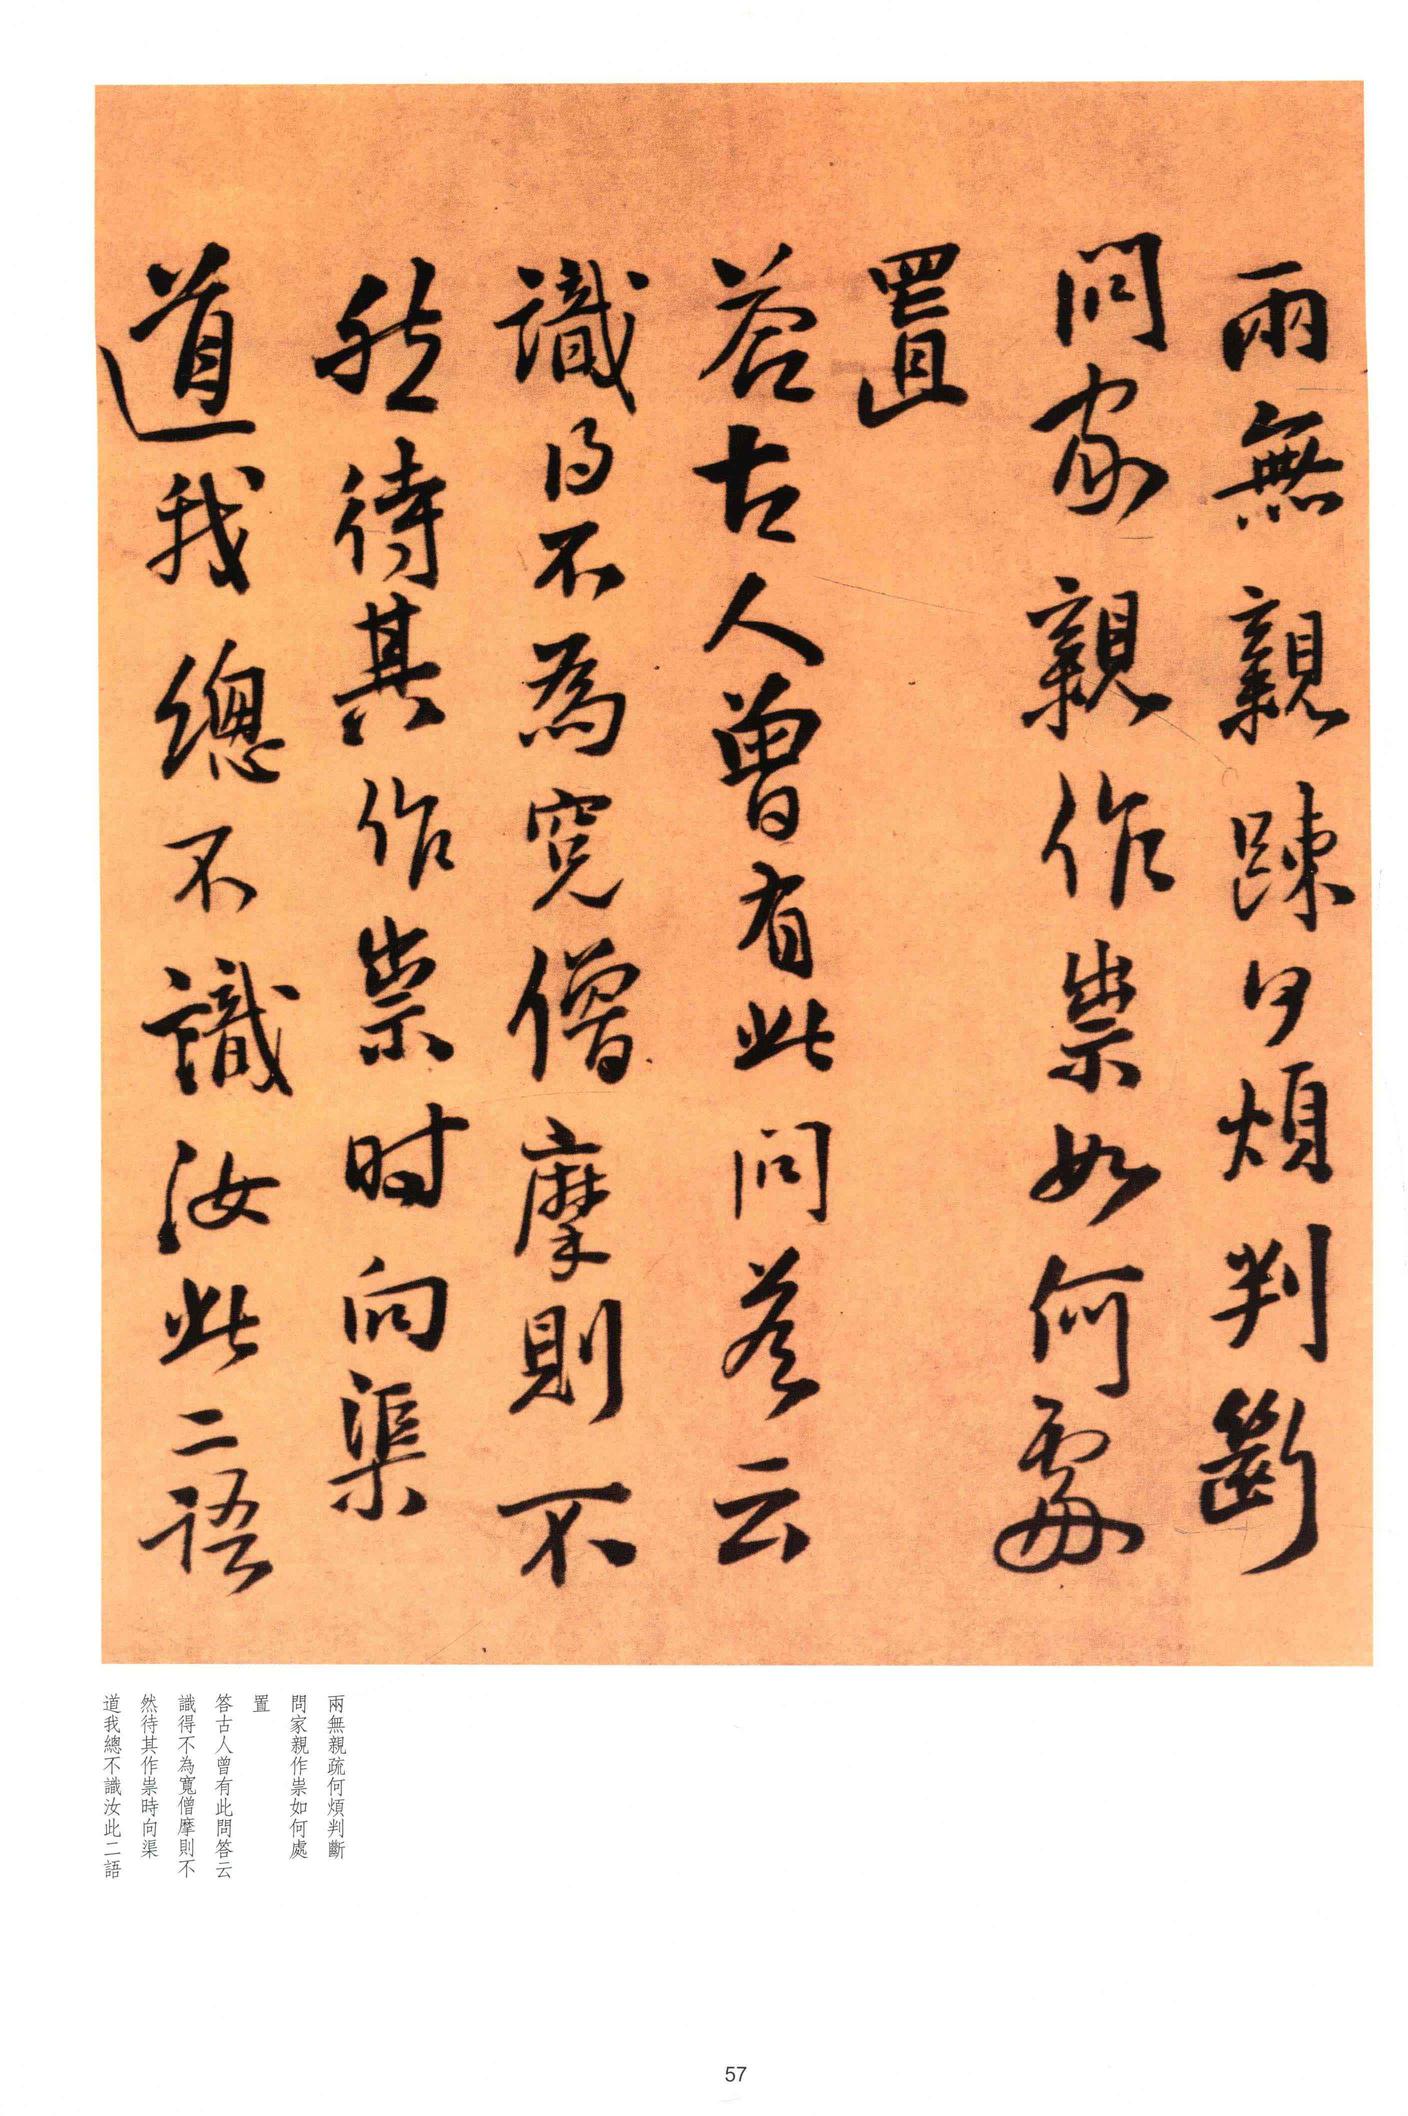 兩無親踈何煩判斷
問家親作祟如何處
置
答古人曾有此問答云
識得不為寃僧摩則不
然待其作祟時向渠
道我總不識汝此二語
兩無親疏何煩判斷
問家親作祟如何處
置
答古人曾有此問答云
識得不為寬僧摩則不
然待其作祟時向渠
道我總不識汝此二語
57